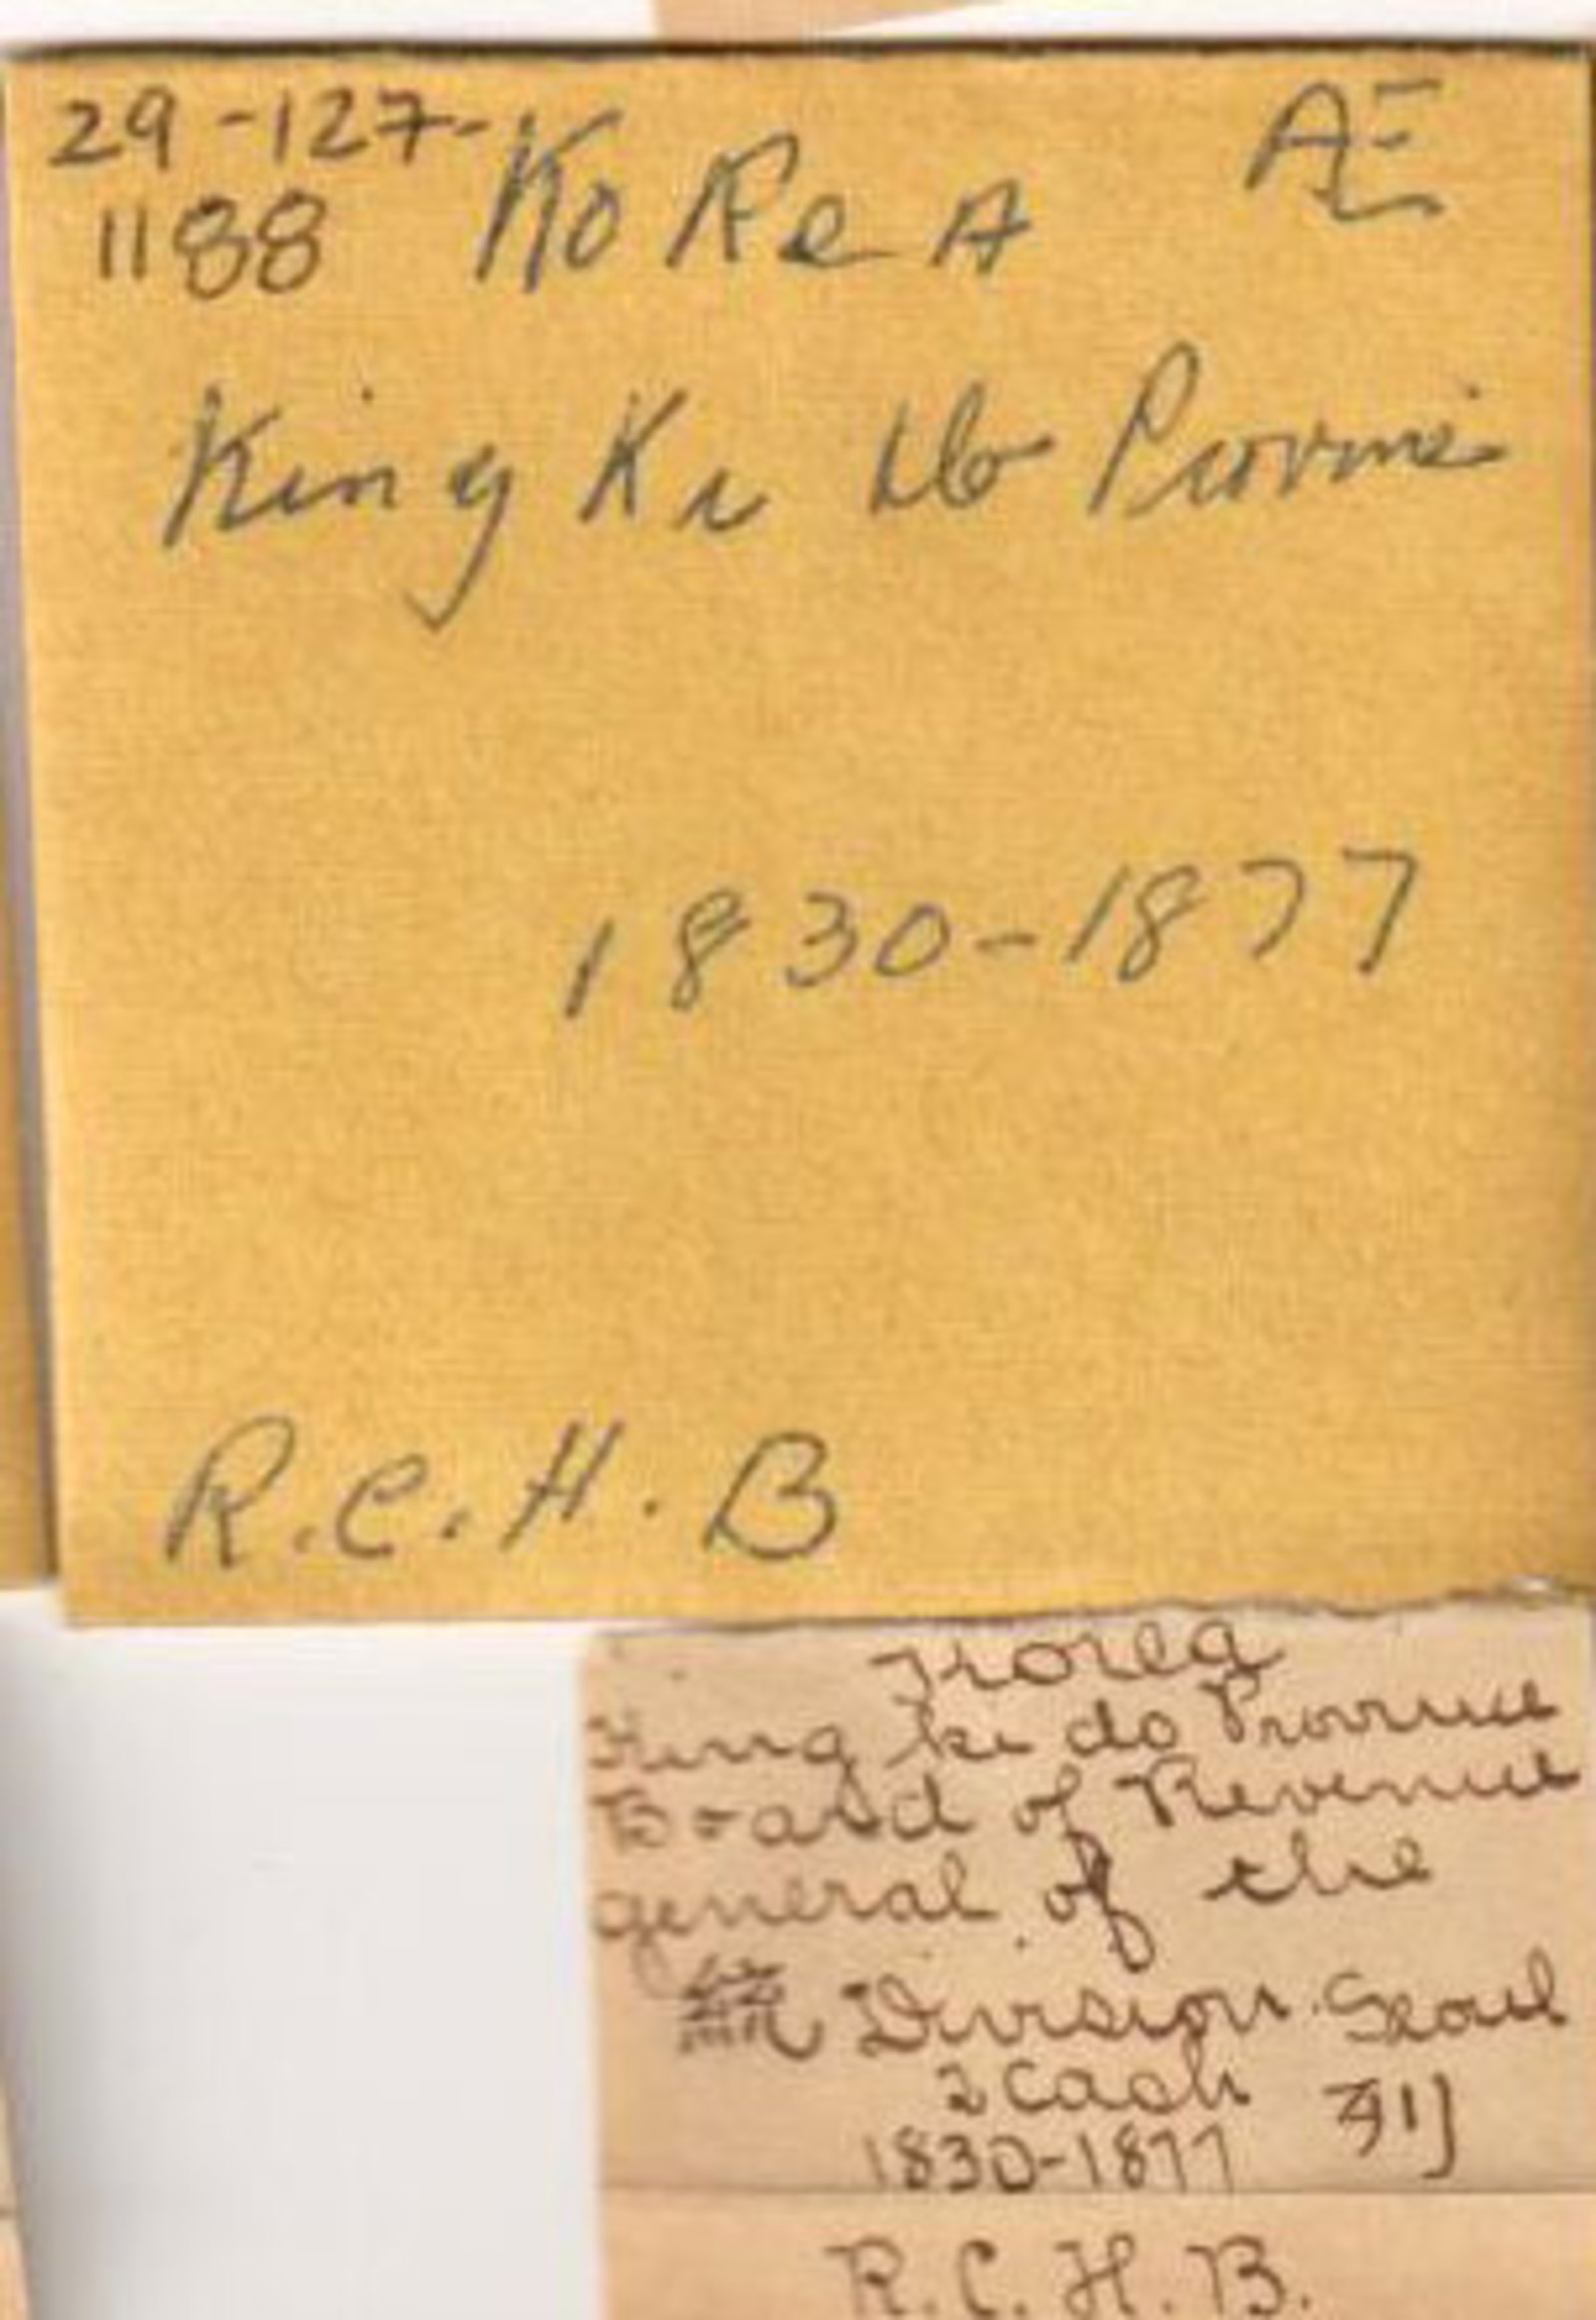 29-127- KoReA Æ
1188
King Ki do Provinc
1830-1877
R.C.H.B
Korea
King ki do Province
Board of Revenue
general of the
Division. Seoul
2 Cash 列
1830-1877
R.C.H.B.